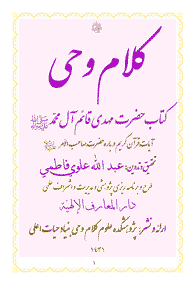 کلام وحی
کتاب حضرت مهدی قائم آل محمد
آیات قرآن کریم درباره حضرت صاحب الامر
تحقیق و تدوین: عبد الله علوی فاطمی
طرح و برنامه ریزی پژوهشی و مدیریت و اشراف علمی
دار المعارف الإلهیة
ارائه و نشر: پژوهشکده علوم کلام وحی بنیاد حیات اعلی
۱۴۳۱
۱